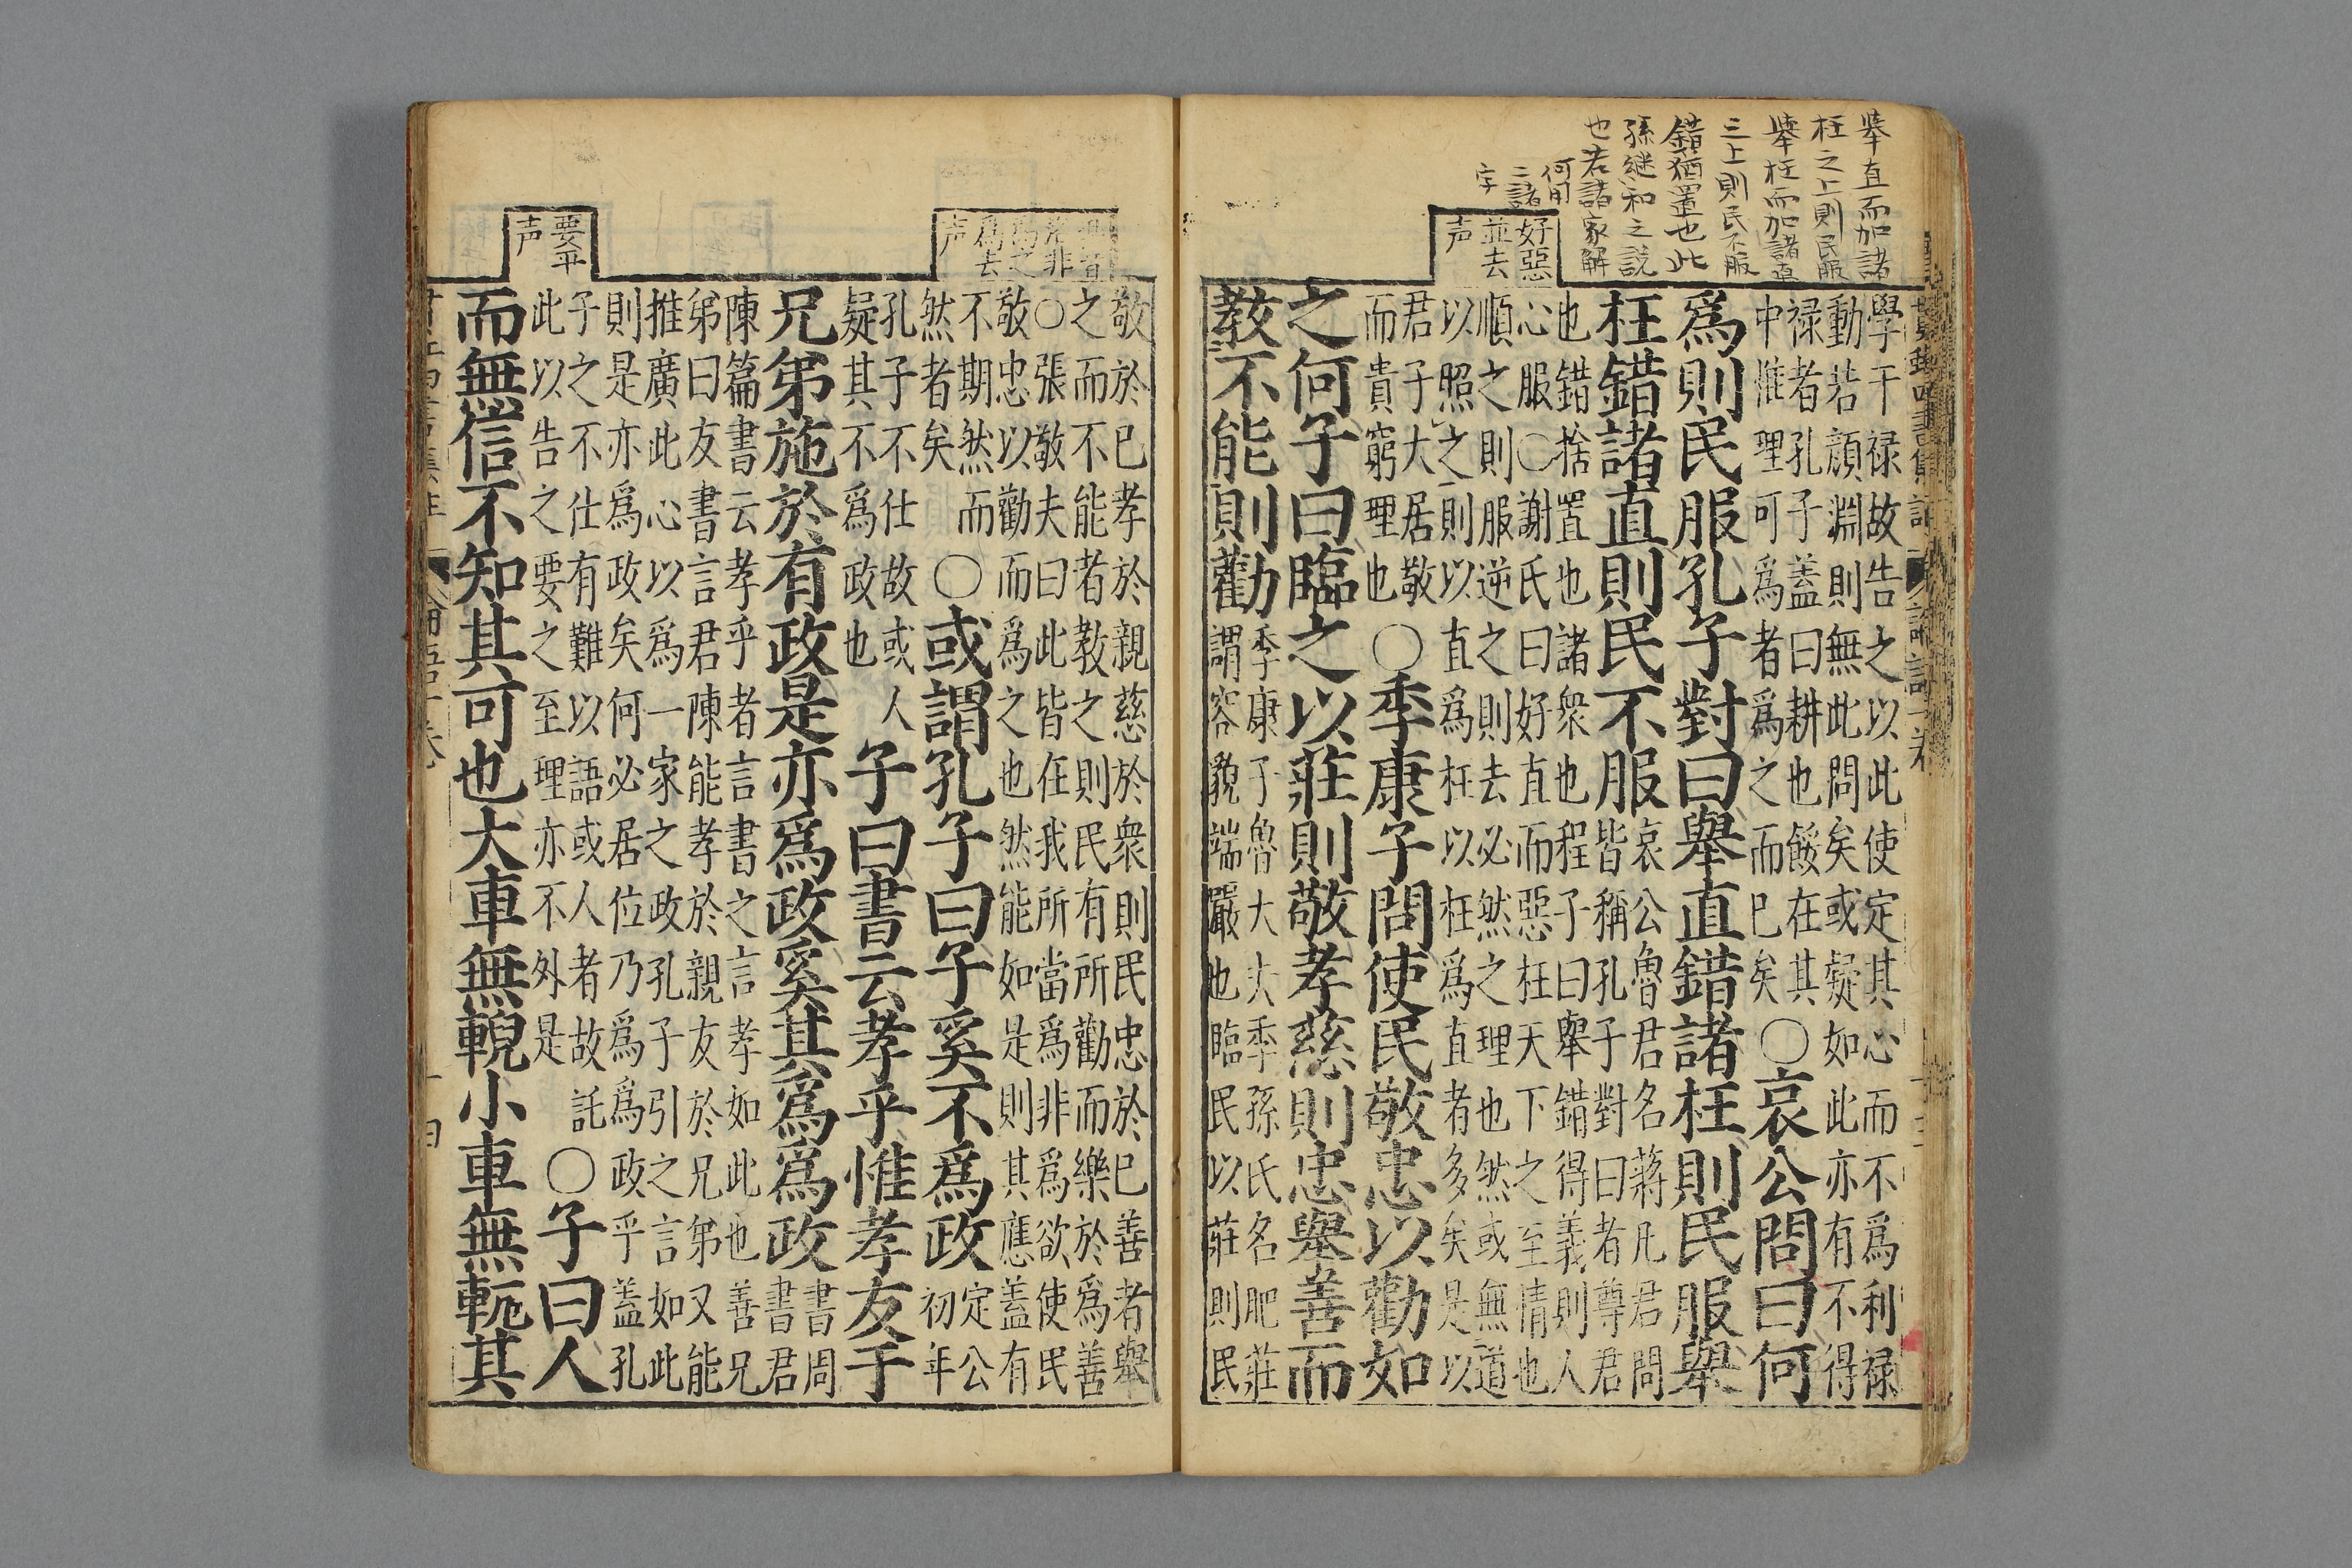 舉直而加諸
枉之上則民服
舉枉而加諸直
之上則民不服
錯猶置也此
孫継和之説
也若諸家解
何用
二諸
字
好惡
並去
声
學干禄故告之以此使定其心而不爲利禄
動若顔淵則無此問矣或疑如此亦有不得
禄者孔子蓋曰耕也餒在其
中惟理可爲者爲之而已矣
○哀公問曰何
爲則民服孔子對曰舉直錯諸枉則民服舉
枉錯諸直則民不服
哀公魯君名蔣凡君問
皆稱孔子對曰者尊君
也錯捨置也諸衆也程子曰舉錯得義則人
心服○謝氏曰好直而惡枉天下之至情也
順之則服逆之則去必然之理也然或無道
以照之則以直爲枉以枉爲直者多矣是以
君子大居敬
而貴窮理也
○季康子問使民敬忠以勸如
之何子曰臨之以莊則敬孝慈則忠舉善而
教不能則勸
季康子魯大夫季孫氏名肥莊
謂容貌端嚴也臨民以莊則民
爲去
声
要平
声
敬於已孝於親慈於衆則民忠於已善者舉
之而不能者教之則民有所勸而樂於爲善
○張敬夫曰此皆在我所當爲非爲欲使民
敬忠以勸而爲之也然能如是則其應蓋有
不期然而
然者矣
○或謂孔子曰子奚不爲政
定公
初年
孔子不仕故或人
疑其不爲政也
子曰書云孝乎惟孝友于
兄弟施於有政是亦爲政奚其爲爲政
書周
書君
陳篇書云孝乎者言書之言孝如此也善兄
弟曰友書言君陳能孝於親友於兄弟又能
推廣此心以爲一家之政孔子引之言如此
則是亦爲政矣何必居位乃爲爲政乎蓋孔
子之不仕有難以語或人者故託
此以告之要之至理亦不外是
○子曰人
而無信不知其可也大車無輗小車無軏其